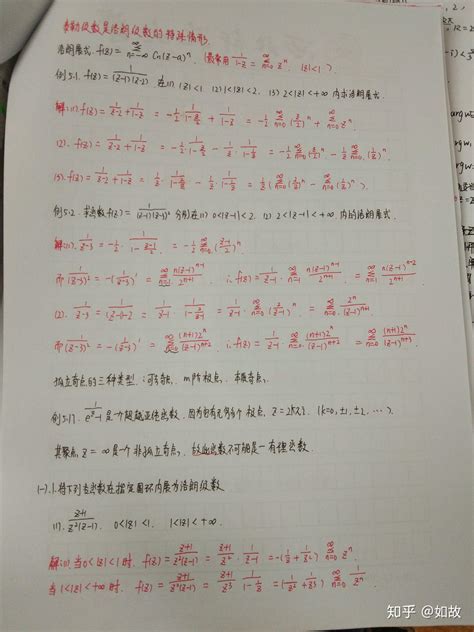 泰勒级数是洛朗级数的特殊情形.
洛朗展式 f(z)=∑_{n=-∞}^{∞} Cn(z-a)^n. (最常用 1/(1-z)=∑_{n=0}^{∞} z^n |z|<1).
例5.1. f(z)=1/((z-1)(z-2)) 在(1) |z|<1. (2) 1<|z|<2. (3) 2<|z|<+∞ 内求洛朗展式.
解:(1). f(z)=1/(z-2)+1/(1-z)=-1/2·1/(1-z/2)+1/(1-z)=-1/2∑_{n=0}^{∞}(z/2)^n+∑_{n=0}^{∞}z^n
(2). f(z)=1/(z-2)+1/(1-z)=-1/2·1/(1-z/2)-1/z·1/(1-1/z)=-1/2∑_{n=0}^{∞}(z/2)^n-1/z∑_{n=0}^{∞}(1/z)^n.
(3). f(z)=1/(z-2)+1/(1-z)=1/z·1/(1-2/z)-1/z·1/(1-1/z)=1/z(∑_{n=0}^{∞}(2/z)^n-∑_{n=0}^{∞}(1/z)^n).
例5.2. 求函数f(z)=1/((z-1)(z-3)^2) 分别在(1) 0<|z-1|<2. (2) 2<|z-1|<+∞ 内的洛朗展式.
解:(1). 1/(z-3)=-1/2·1/(1-(z-1)/2)=-1/2∑_{n=0}^{∞}((z-1)/2)^n
而1/(z-3)^2=-(1/(z-3))'=∑_{n=1}^{∞} n(z-1)^{n-1}/2^{n+1} ∴f(z)=1/(z-1)·∑_{n=1}^{∞} n(z-1)^{n-1}/2^{n+1}=∑_{n=1}^{∞} n(z-1)^{n-2}/2^{n+1}
(2). 1/(z-3)=1/(z-1-2)=1/(z-1)·1/(1-2/(z-1))=1/(z-1)·∑_{n=0}^{∞}(2/(z-1))^n=∑_{n=0}^{∞} 2^n/(z-1)^{n+1}
而1/(z-3)^2=-(1/(z-3))'=∑_{n=0}^{∞}(n+1)2^n/(z-1)^{n+2} ∴f(z)=1/(z-1)·∑_{n=0}^{∞}(n+1)2^n/(z-1)^{n+2}=∑_{n=0}^{∞}(n+1)2^n/(z-1)^{n+3}
孤立奇点的三种类型:可去奇点, m阶极点, 本性奇点.
例5.17. 1/(e^z-1) 是一个超越亚纯函数, 因为它有无穷多个极点, z=2kπi. (k=0,±1,±2,…).
其聚点z=∞是一个非孤立奇点, 故此函数不可能是一有理函数.
(一).1.将下列各函数在指定圆环内展为洛朗级数
(1). (z+1)/(z^2(z-1)). 0<|z|<1. 1<|z|<+∞.
解:(1) 当0<|z|<1时, f(z)=(z+1)/(z^2(z-1))=(z+1)/z^2·1/(z-1)=-(1/z+1/z^2)∑_{n=0}^{∞}z^n
当1<|z|<+∞时. f(z)=(z+1)/(z^2(z-1))=(z+1)/z^3·1/(1-1/z)=(1/z^2+1/z^3)∑_{n=0}^{∞}1/z^n.
知乎 @如故